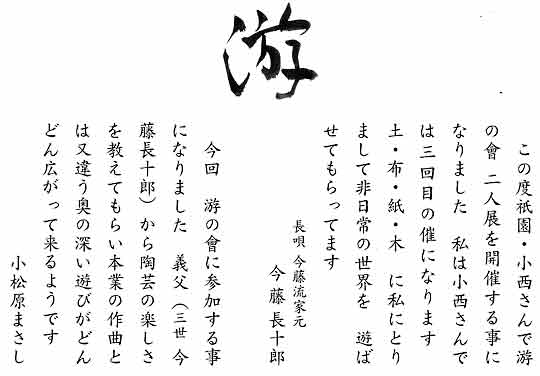 游
この度祇園・小西さんで游
の會 二人展を開催する事に
なりました 私は小西さんで
は三回目の催になります
土・布・紙・木 に私にとり
まして非日常の世界を 遊ば
せてもらってます
長唄 今藤流家元
今藤長十郎
今回 游の會に参加する事
になりました 義父(三世 今
藤長十郎)から陶芸の楽しさ
を教えてもらい本業の作曲と
は又違う奥の深い遊びがどん
どん広がって来るようです
小松原まさし